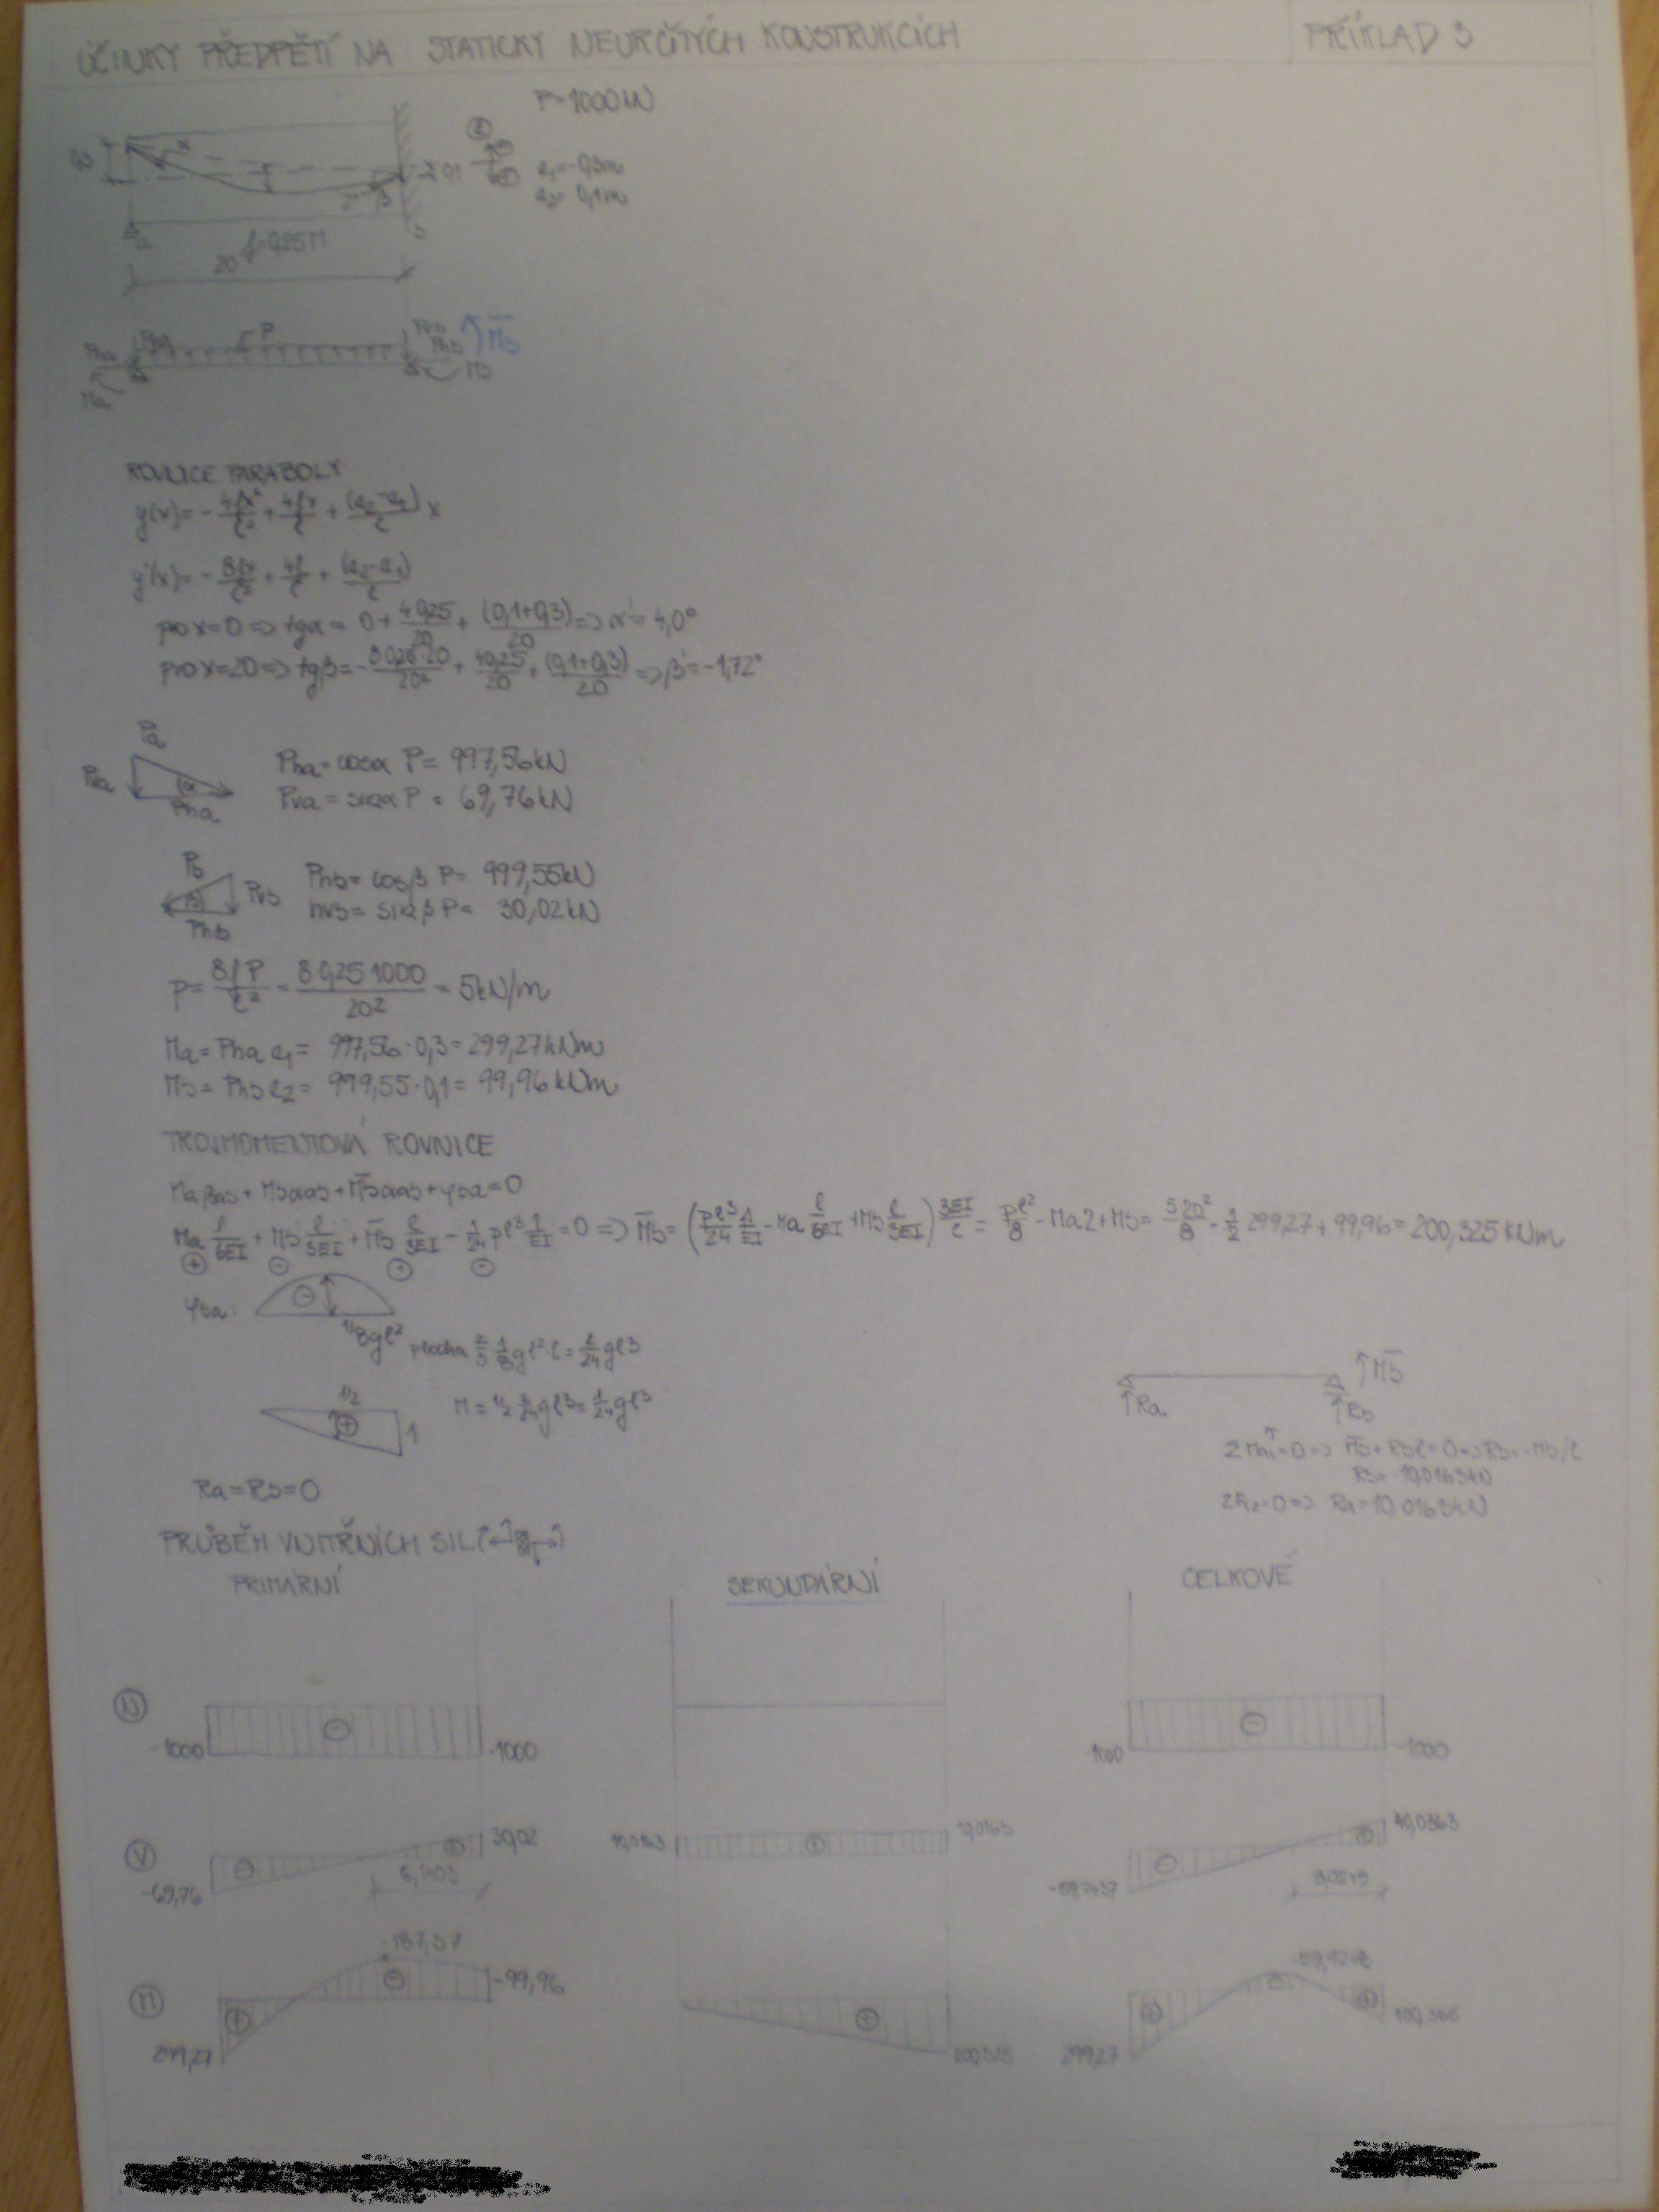 ÚČINKY PŘEDPĚTÍ NA STATICKY NEURČITÝCH KONSTRUKCÍCH
PŘÍKLAD 3
P=1000kN
e₁=-0,3m
e₂= 0,1m
f=0,25M
20
ROVNICE PARABOLY
y(x)= - 4fx²/l² + 4fx/l + (e₂-e₁)/l x
y'(x)= - 8fx/l² + 4f/l + (e₂-e₁)/l
pro x=0 => tgα = 0 + 4·0,25/20 + (0,1+0,3)/20 => α = 4,0°
pro x=20 => tgβ = - 8·0,25·20/20² + 4·0,25/20 + (0,1+0,3)/20 => β = -1,72°
Pa
Pva
Pha
α
Pha = cosα P = 997,56kN
Pva = sinα P = 69,76kN
Pb
Pvb
Phb
β
Phb = cosβ P = 999,55kN
hvb = sinβ P = 30,02kN
p = 8fP/l² = 8·0,25·1000/20² = 5kN/m
Ma = Pha e₁ = 997,56·0,3 = 299,27kNm
Mb = Phb e₂ = 999,55·0,1 = 99,96kNm
TROJMOMENTOVÁ ROVNICE
Ma βab + Mb αab + M̅b αab + φba = 0
Ma l/6EI + Mb l/3EI + M̅b l/3EI - 1/24 pl³ 1/EI = 0 => M̅b = (pl³/24 1/EI - Ma l/6EI + Mb l/3EI) 3EI/l = pl²/8 - Ma 2 + Mb = 5·20²/8 - 1/2 299,27 + 99,96 = 200,325 kNm
φba:
1/8gl²
plocha 2/3 1/8 gl²·l = 2/24 gl³
1/2
1
M = 1/2 2/24 gl³ = 1/24 gl³
M̅b
Ra
Rb
ΣMai=0 => M̅b + Rbl = 0 => Rb = -Mb/l
Rb = -10,0163kN
ΣFiz=0 => Ra = 10,0163kN
Ra=Rb=0
PRŮBĚH VNITŘNÍCH SIL
PRIMÁRNÍ
SEKUNDÁRNÍ
CELKOVÉ
N
-1000
-1000
-1000
-1000
V
-69,76
30,02
6,1403
10,0163
10,0163
-59,7437
40,0363
8,0219
M
299,27
187,37
-99,96
200,325
299,27
100,365